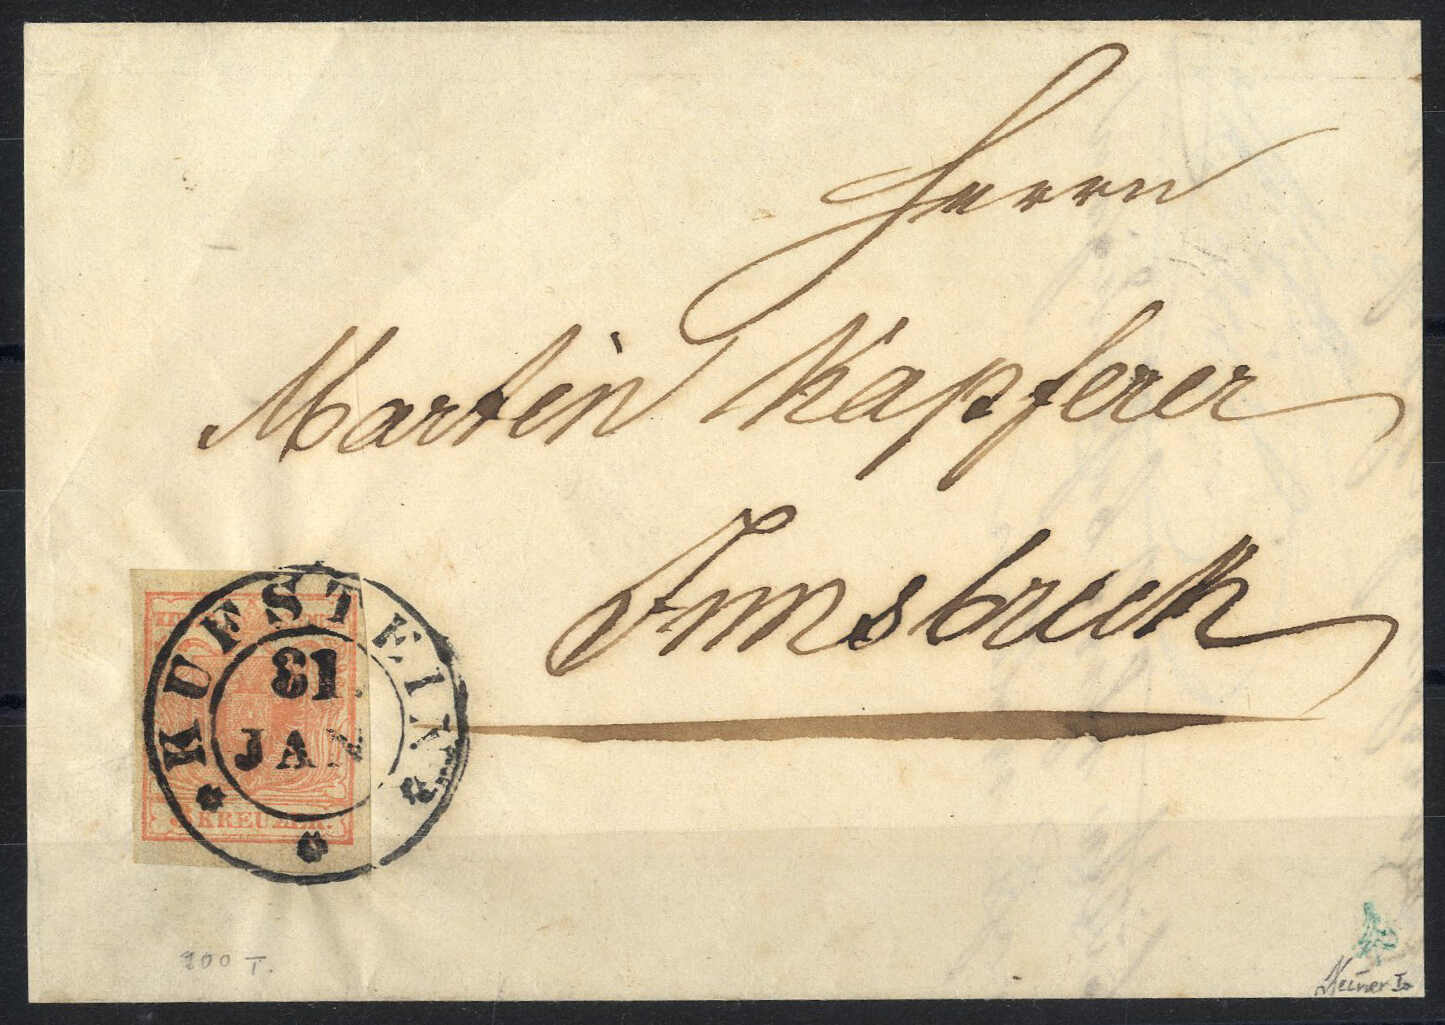 Herrn
Martin Kapferer
Innsbruck
KUFSTEIN
31.
JAN
3 KREUZER.